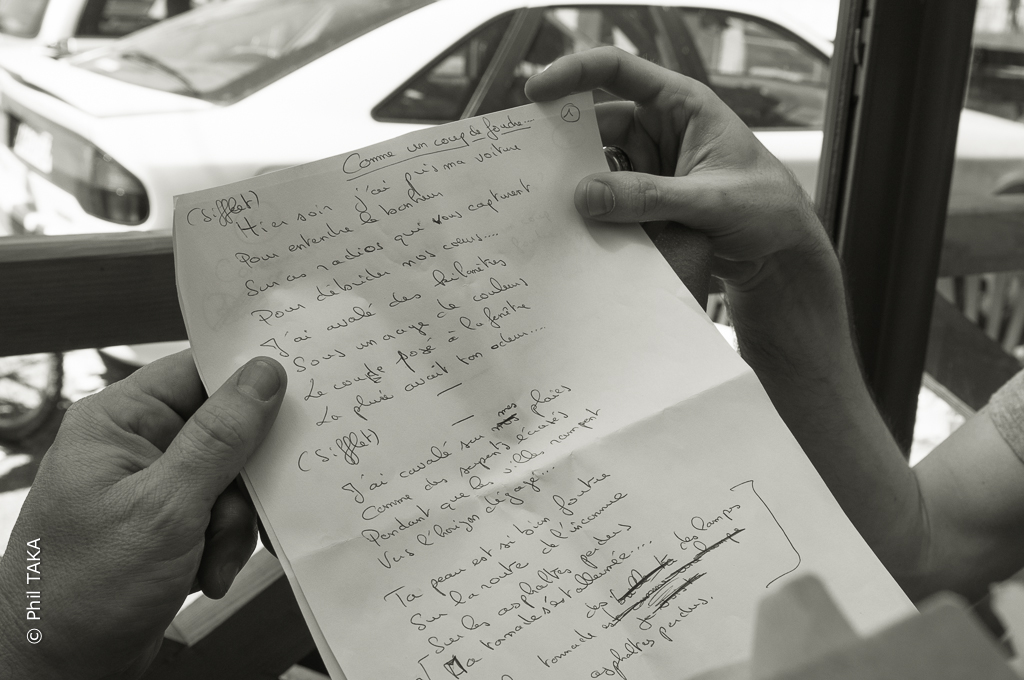 Comme un coup de foudre...
1
(Sifflet)
Hier soir j'ai pris ma voiture
Pour entendre le bonheur
Sur ces radios qui vous capturent
Pour débrider nos coeurs....
J'ai avalé des kilomètres
Sous un nuage de couleurs
Le coude posé à la fenêtre
La pluie avait ton odeur....
(Sifflet)
J'ai cavalé sur mes plaies
Comme des serpents écrasés
Pendant que les villes rampent
Vers l'horizon dégagé...
Ta peau est si bien foutue
Sur la route de l'inconnue
Sur les asphaltes perdus
La tornade s'est allumée....
tornade des lampes
asphaltes perdus.
© Phil TAKA